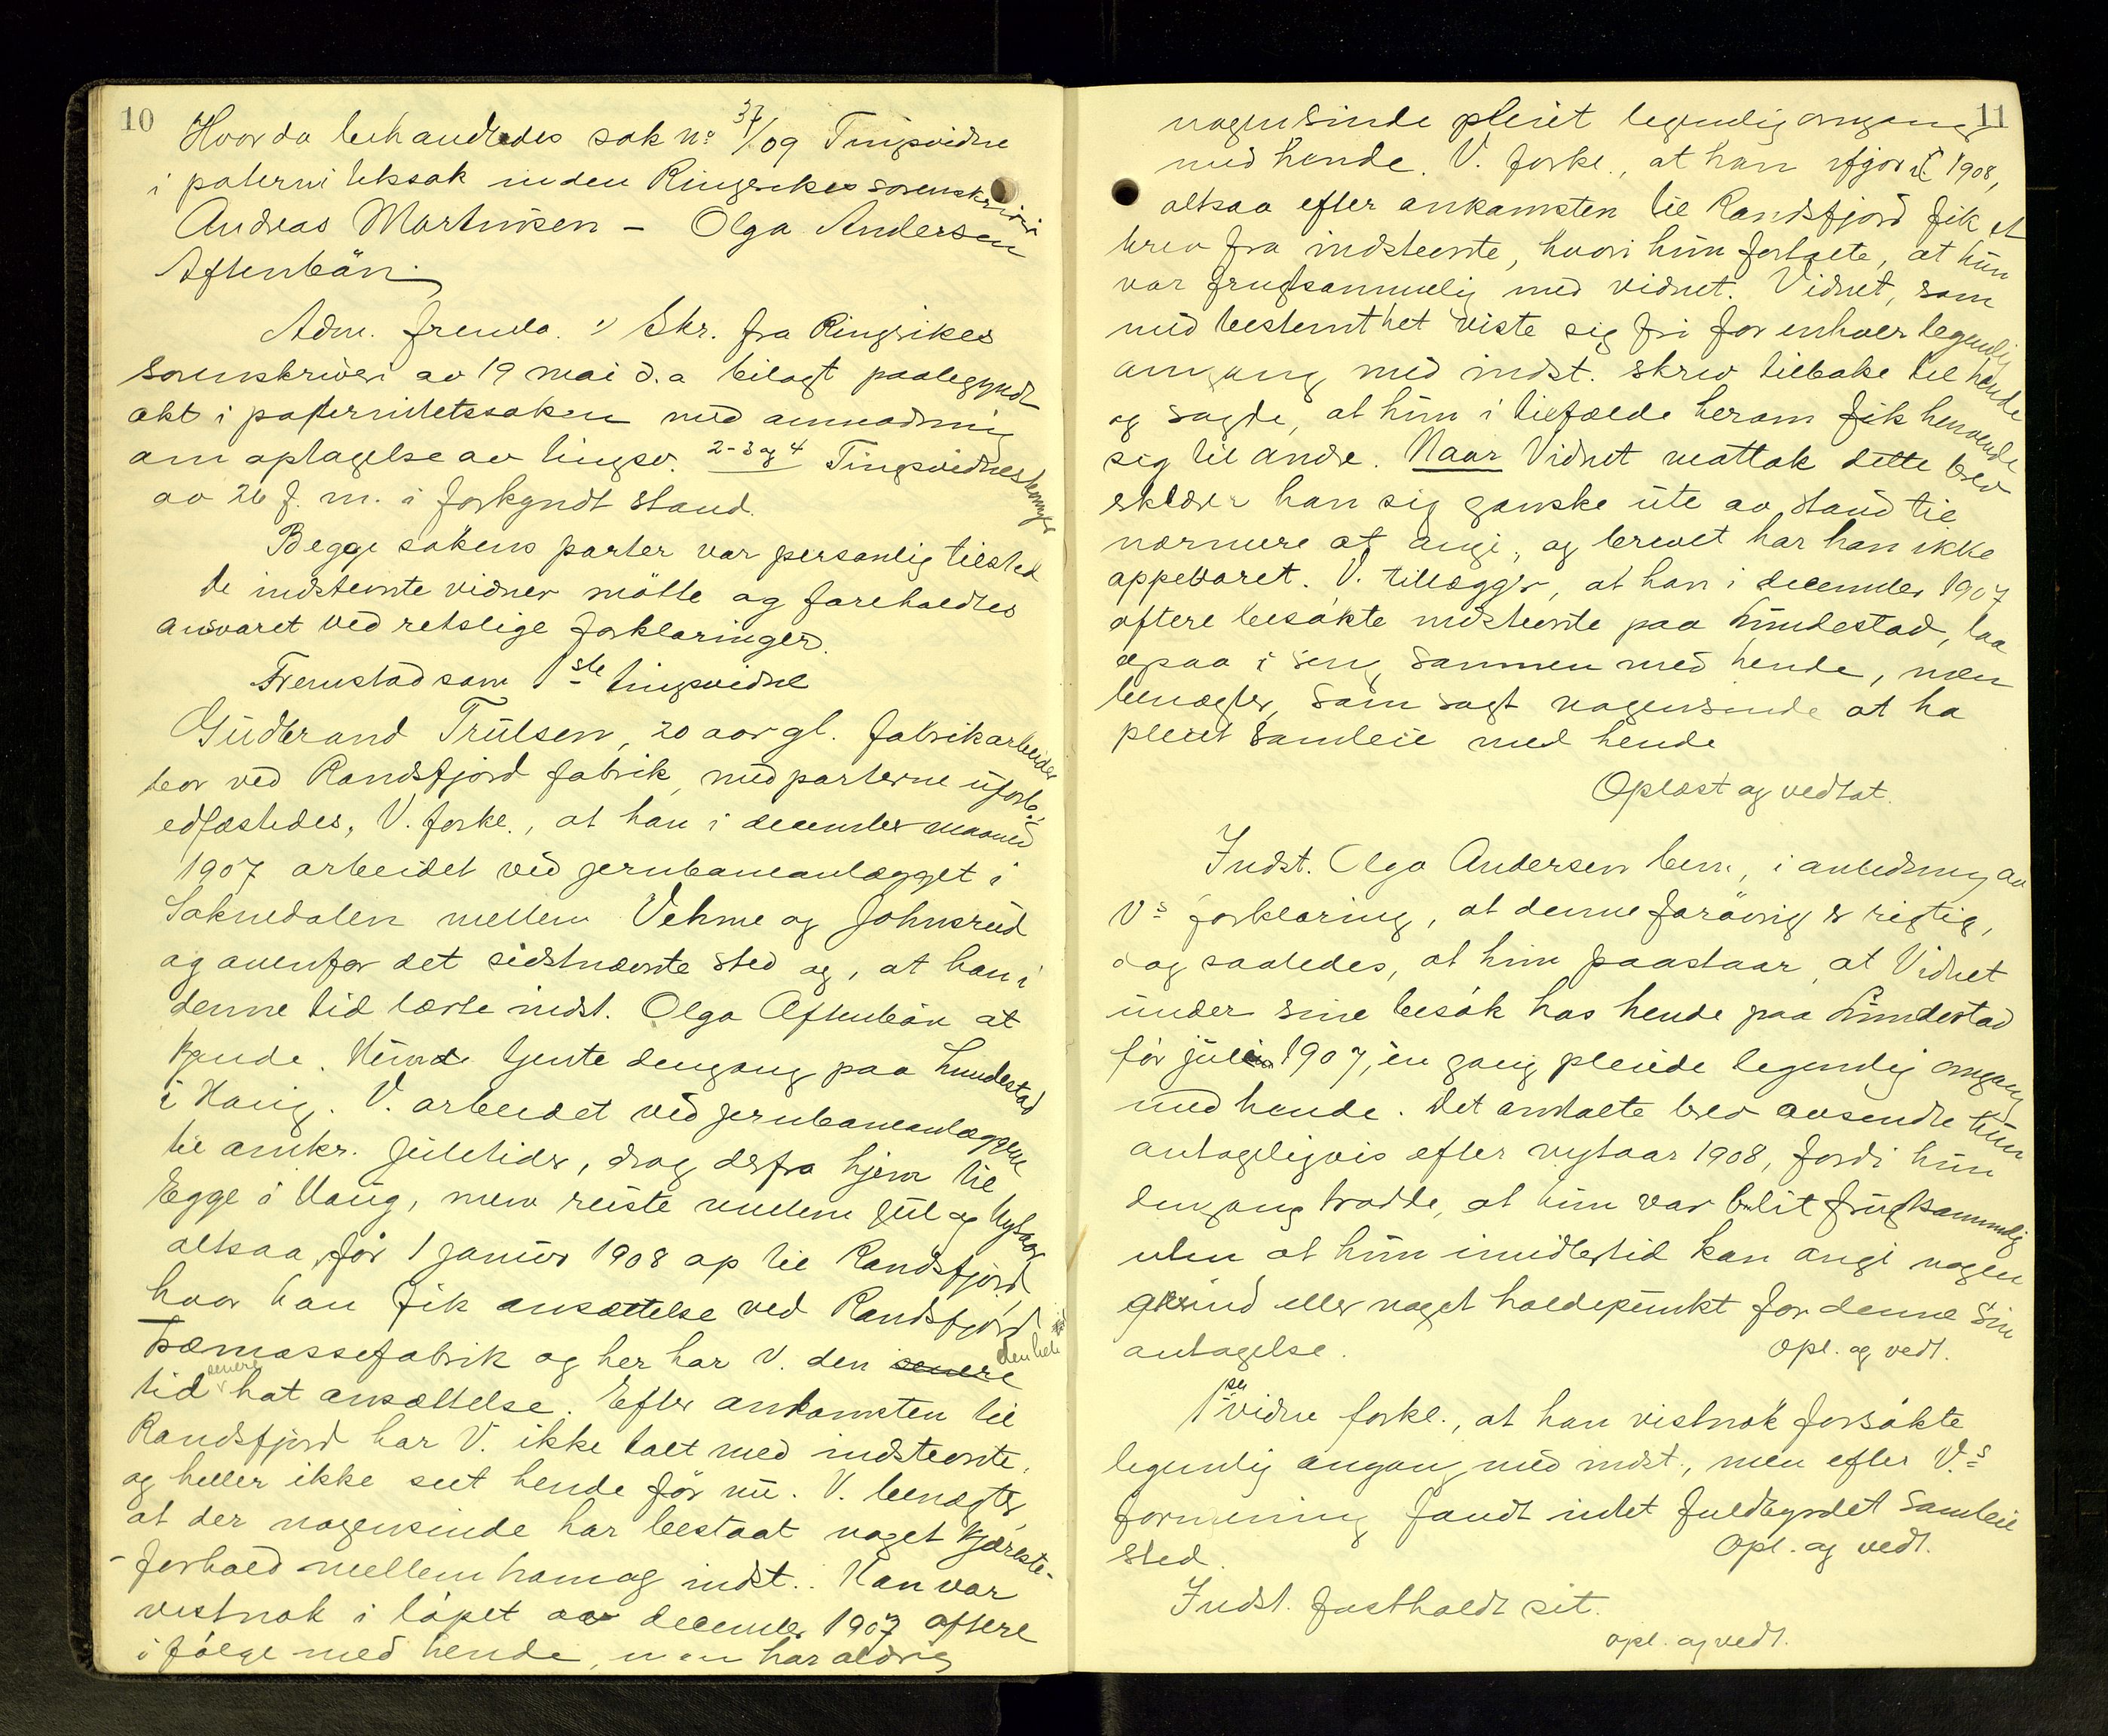 10
Hvor da behandledes sak no 37/09 Tingsvidne
i paternitetssak inden Ringerikes sorenskriveri
Andreas Martinsen - Olga Andersen
Aftenbön.
Adm. fremla. 1) Skr. fra Ringerikes
sorenskriveri av 19 mai d.a bilagt paabegyndt
akt i paternitetssaken med anmodning
om optagelse av tingsv. 2-3 og 4 Tingsvidnestevninger
av 26 f. m. i forkyndt stand.
Begge sakens parter var personlig tilsted
de indstevnte vidner mötte og foreholdtes
ansvaret ved retslige forklaringer.
Fremstod som 1ste tingsvidne
Gudbrand Trulsen, 20 aar gl. fabrikarbeider
bor ved Randsfjord fabrik, med parterne uforb.
edfæstedes, V. forkl., at han i december maaned
1907 arbeidet ved jernbaneanlægget i
Soknedalen mellem Vehme og Johnsrud
og ovenfor det sidstnævnte sted og, at han i
denne tid lærte indst. Olga Aftenbön at
kjende. Hun tjente dengang paa Lundestad
i Haug. V. arbeidet ved jernbaneanlæggene
til omkr. juletider, drog derfra hjem til
Egge i Haug, men reiste mellem jul og Nytaar
altsaa för 1 januar 1908 op til Randsfjord,
hvor han fik ansættelse ved Randsfjord
Træmassefabrik og her har V. den senere den hele
tid senere hat ansættelse. Efter ankomsten til
Randsfjord har V. ikke talt med indstevnte,
og heller ikke seet hende för nu. V. benægter,
at der nogensinde har bestaat noget kjæreste-
-forhold mellem ham og indst.. Han var
vistnok i löpet av december 1907 oftere
i fölge med hende, men har aldrig
11
nogensinde pleiet legemlig omgang
med hende. V. forkl., at han ifjor 1908,
altsaa efter ankomsten til Randsfjord fik et
brev fra indstevnte, hvori hun fortalte, at hun
var frugtsommelig med vidnet. Vidnet, som
med bestemthet viste sig fri for enhver legemlig
omgang med indst. skrev tilbake til hende
og sagde, at hun i tilfælde herom fik henvende
sig til andre. Naar Vidnet mottok dette brev
erklærer han sig ganske ute av stand til
nærmere at angi, og brevet har han ikke
oppebaret. V. tillægger, at han i december 1907
oftere besökte indstevnte paa Lundestad, laa
ogsaa i seng sammen med hende, men
benægter, som sagt nogensinde at ha
pleiet samleie med hende
Oplæst og vedtat.
Indst. Olga Andersen bem., i anledning av
Vs forklaring, at denne forövrig er rigtig,
dog saaledes, at hun paastaar, at Vidnet
under sine besök hos hende paa Lundestad
för jul 1907, en gang pleiede legemlig omgang
med hende. Det omtalte brev avsendte hun
antageligvis efter nytaar 1908, fordi hun
dengang trodde, at hun var blit frugtsommelig
uten at hun imidlertid kan angi nogen
grund eller noget holdepunkt for denne sin
antagelse.
Opl. og vedt.
1ste vidne forkl., at han vistnok forsökte
legemlig omgang med indst., men efter V.s
formening fandt intet fuldbyrdet samleie
sted.
Opl. og vedt.
Indst. fastholdt sit.
opl. og vedt.